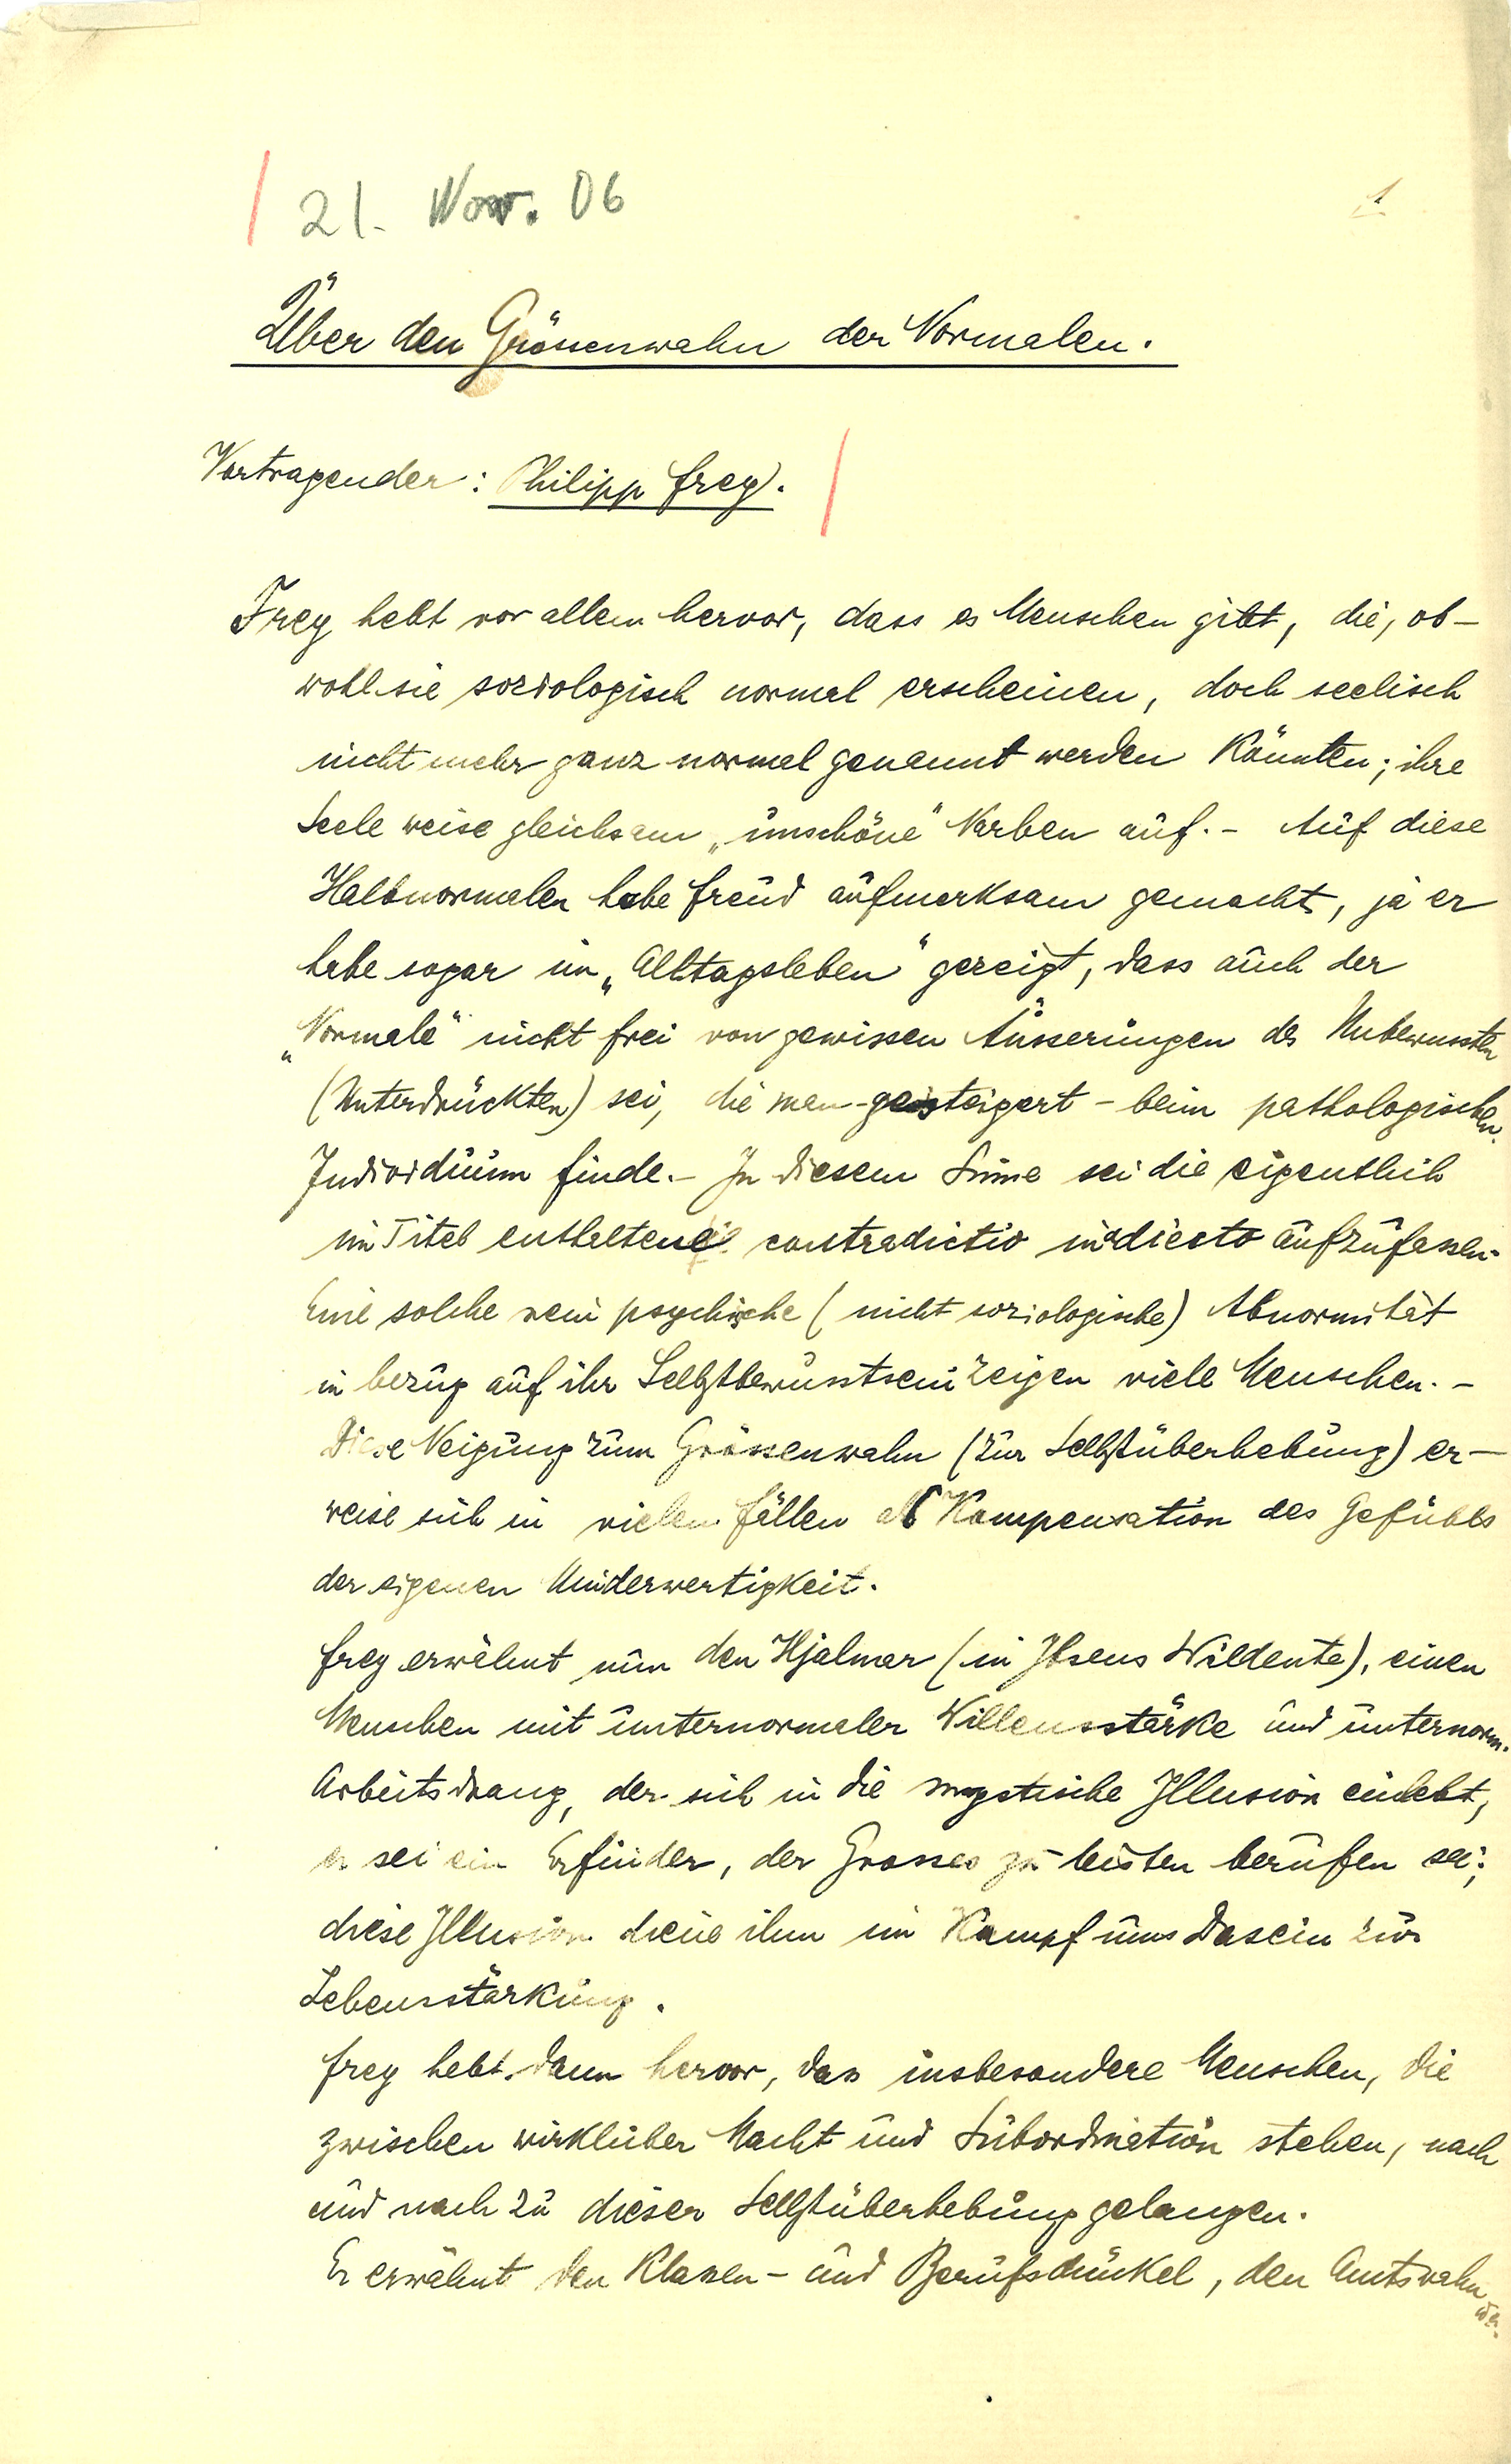 21. Nov. 06
1
Über den Grössenwahn der Normalen.
Vortragender: Philipp Frey.
Frey hebt vor allem hervor, dass es Menschen gibt, die, ob-
wohl sie soziologisch normal erscheinen, doch seelisch
nicht mehr ganz normal genannt werden könnten; ihre
Seele weise gleichsam „unschöne" Narben auf. - Auf diese
Halbnormalen habe Freud aufmerksam gemacht, ja er
habe sogar im „Alltagsleben" gezeigt, dass auch der
„Normale" nicht frei von gewissen Äusserungen des Unbewussten
(Unterdrückten) sei, die man - gesteigert - beim pathologischen
Individuum finde. - In diesem Sinne sei die eigentlich
im Titel enthaltene contradictio in adiecto aufzufassen.
Eine solche rein psychische (nicht soziologische) Abnormität
in bezug auf ihr Selbstbewusstsein zeigen viele Menschen. -
Diese Neigung zum Grössenwahn (zur Selbstüberhebung) er-
weise sich in vielen Fällen als Kompensation des Gefühls
der eigenen Minderwertigkeit.
Frey erwähnt nun den Hjalmar (in Ibsens Wildente), einen
Menschen mit unternormaler Willensstärke und unternorm.
Arbeitsdrang, der sich in die mystische Illusion einlebt,
er sei ein Erfinder, der Grosses zu leisten berufen sei;
diese Illusion diene ihm im Kampf ums Dasein zur
Lebensstärkung.
Frey hebt dann hervor, dass insbesondere Menschen, die
zwischen wirklicher Macht und Subordination stehen, nach
und nach zu dieser Selbstüberhebung gelangen.
Er erwähnt den Klassen- und Berufsdünkel, den Amtswahn